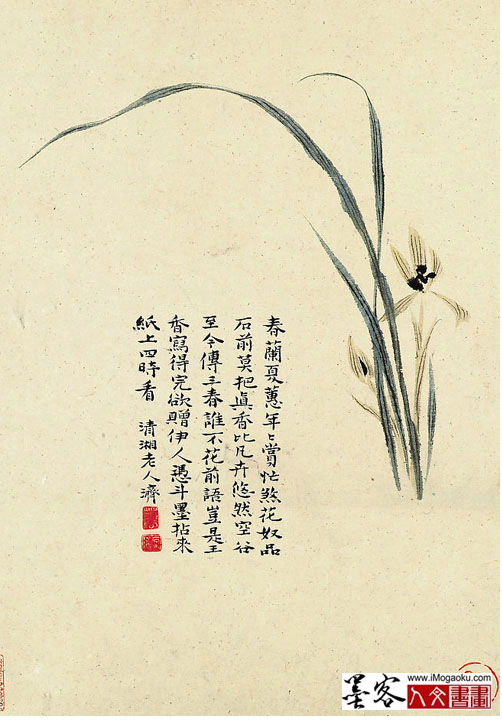 春蘭夏蕙年々賞忙煞花奴品
石前莫把眞香比凡卉悠然空谷
至今傳三春誰不花前語豈是王
香寫得完欲贈伊人憑斗墨拈來
紙上四時看 清湘老人濟
墨客 www.iMogaoku.com
人文書畫